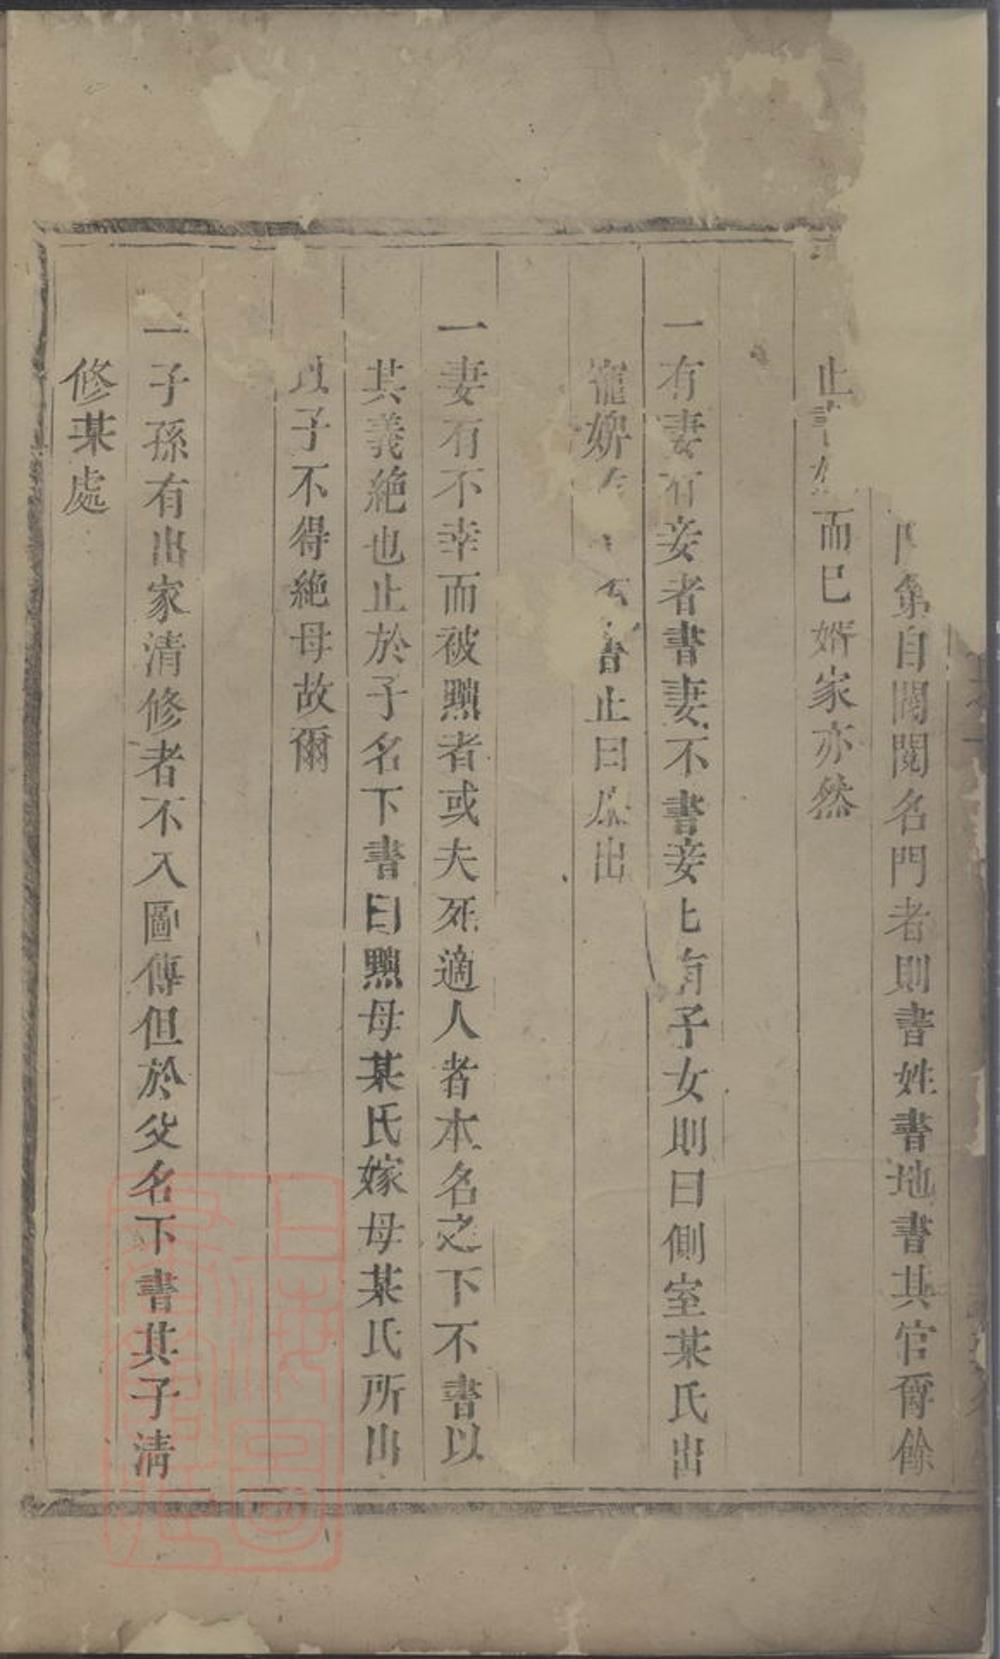 第自閥閱名門者則書姓書地書其官爵餘
止書姓而已婿家亦然
一有妻有妾者書妻不書妾七有子女則曰側室某氏出
寵婢書止曰庶出
一妻有不幸而被黜者或夫死適人者本名之下不書以
其義絕也止於子名下書曰黜母某氏嫁母某氏所出
以子不得絕母故爾
一子孫有出家清修者不入圖傳但於父名下書其子清
修某處